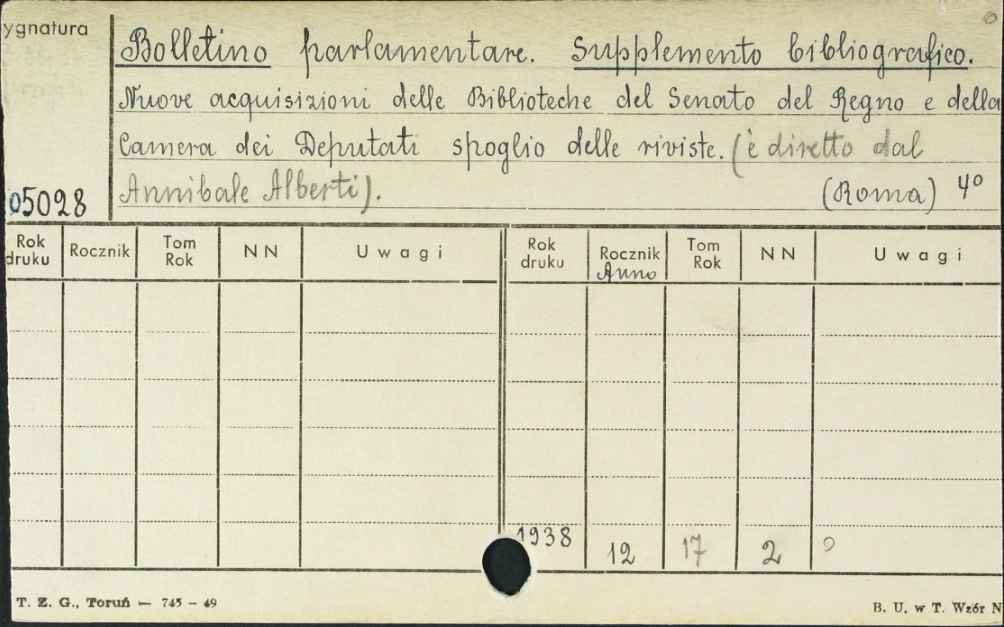 ygnatura
Bolletino parlamentare. Supplemento bibliografico.
Nuove acquisizioni delle Biblioteche del Senato del Regno e della
Camera dei Deputati spoglio delle riviste. (è diretto dal
Annibale Alberti). (Roma) 4º
05028
Rok druku Rocznik Tom Rok NN Uwagi Rok druku Rocznik Anno Tom Rok NN Uwagi
1938 12 17 2
T. Z. G., Toruń — 745 – 49
B. U. w T. Wzór N